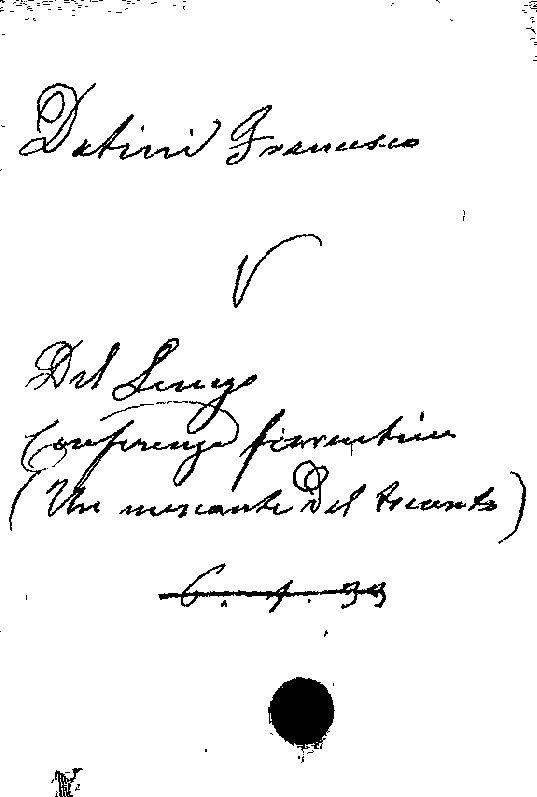 Datini Francesco
V
Del Lungo
Conferenze fiorentine
(Un mercante del trecento)
6. 1. 33